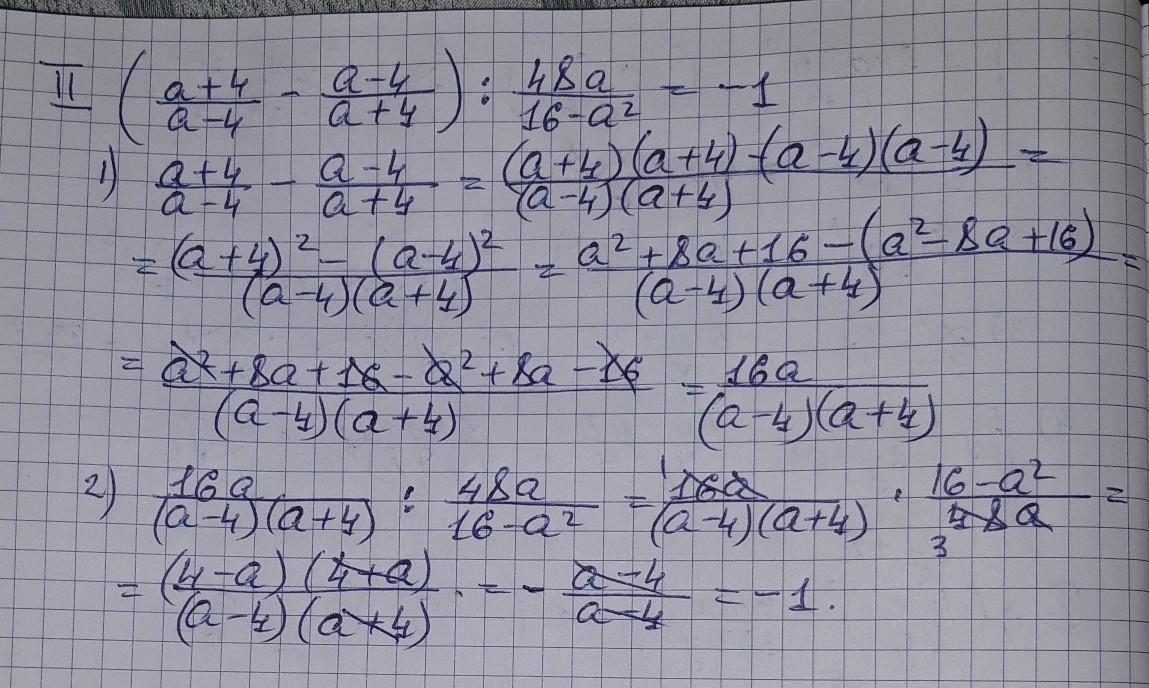 II ( (a+4)/(a-4) - (a-4)/(a+4) ) : 48a/(16-a²) = -1
1) (a+4)/(a-4) - (a-4)/(a+4) = ((a+4)(a+4)-(a-4)(a-4))/((a-4)(a+4)) =
= ((a+4)² - (a-4)²)/((a-4)(a+4)) = (a²+8a+16-(a²-8a+16))/((a-4)(a+4)) =
= (a²+8a+16-a²+8a-16)/((a-4)(a+4)) = 16a/((a-4)(a+4))
2) 16a/((a-4)(a+4)) : 48a/(16-a²) = 1 16a/((a-4)(a+4)) · (16-a²)/(48a) 3 =
= ((4-a)(4+a))/((a-4)(a+4)) · = - (a-4)/(a-4) = -1.